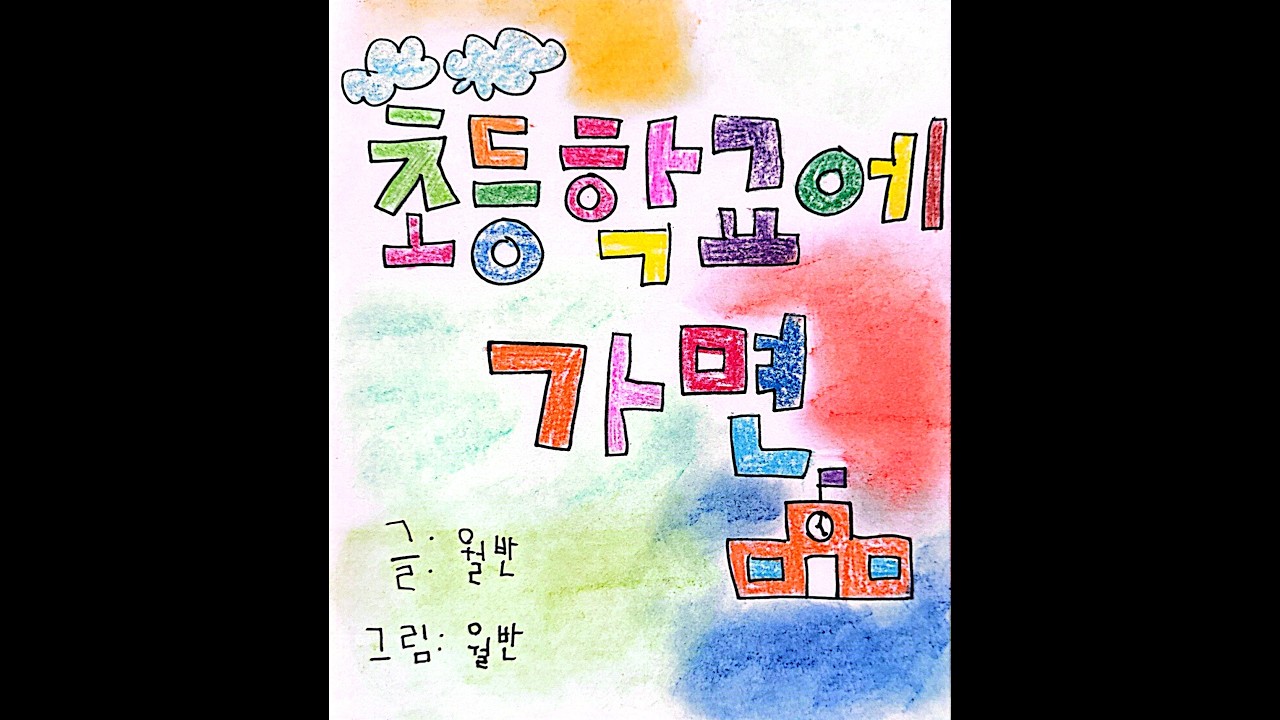 초등학교에
가면
글: 월반
그림: 월반